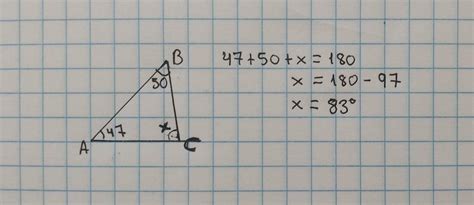 B
50
47
x
A
C
47+50+x=180
x=180-97
x=83°